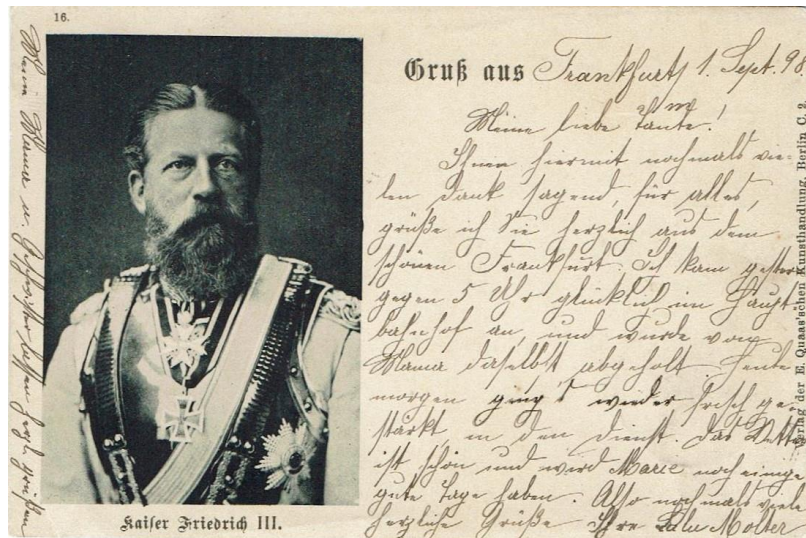 16.
Gruß aus Frankfurt, 1. Sept. 98
Meine liebe Tante!
Ihnen hiermit nochmals vie-
len Dank sagend, für alles,
grüße ich Sie herzlich aus dem
schönen Frankfurt. Ich kam gestern
gegen 5 Uhr glücklich im Haupt-
bahnhof an, und wurde von
Mama daselbst abgeholt. Heute
morgen ging's wieder frisch ge-
stärkt in den Dienst. Das Wetter
ist schön und wird Marie noch einige
gute Tage haben. Also nochmals viele
herzliche Grüße Ihre Molter
Meine Mama u. Geschwister lassen herzl. grüßen
Kaiser Friedrich III.
Verlag der E. Quaas'schen Kunsthandlung. Berlin C. 2.